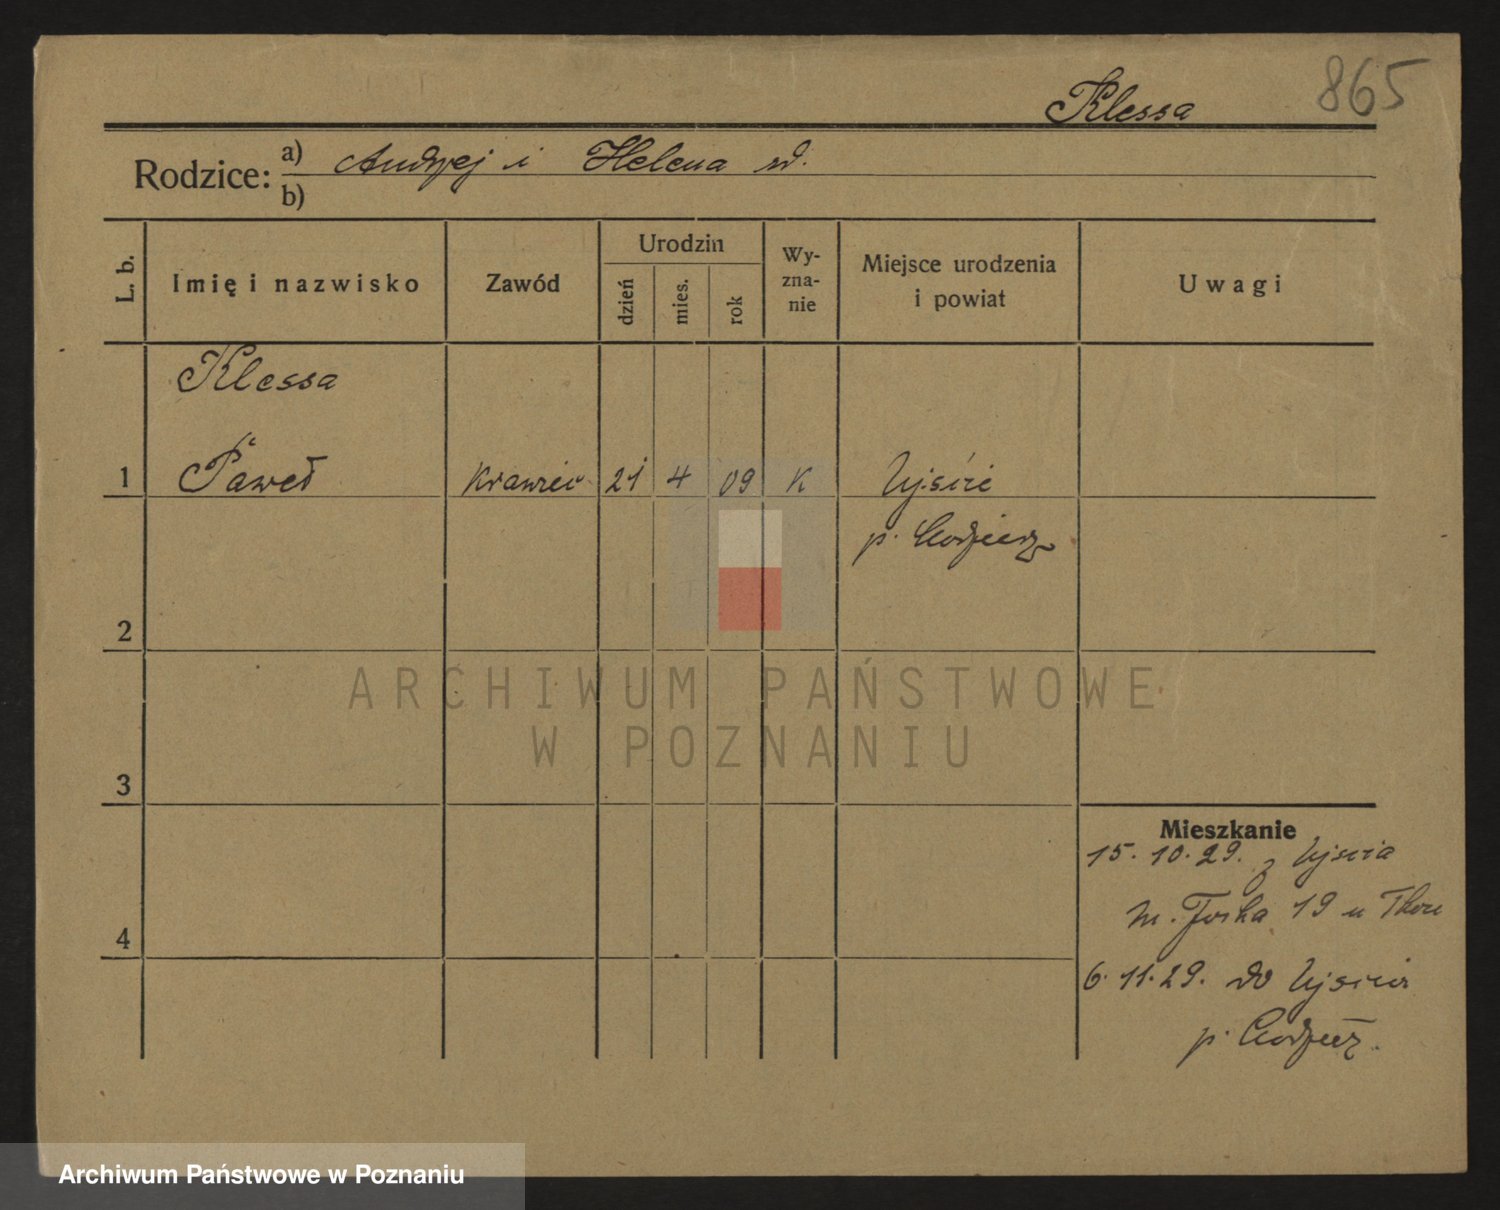 865
Klessa
Rodzice: a) Andrzej i Helena
b)
L. b.
Imię i nazwisko
Zawód
Urodzin
dzień
mies.
rok
Wy-
zna-
nie
Miejsce urodzenia
i powiat
Uwagi
Klessa
1 Paweł krawiec 21 4 09 K Ujście
p. Chodzież
2
3
4
Mieszkanie
15. 10. 29. z Ujścia
m. Focha 19 u
6. 11. 29. do Ujścia
p. Chodzież
ARCHIWUM PAŃSTWOWE
W POZNANIU
Archiwum Państwowe w Poznaniu